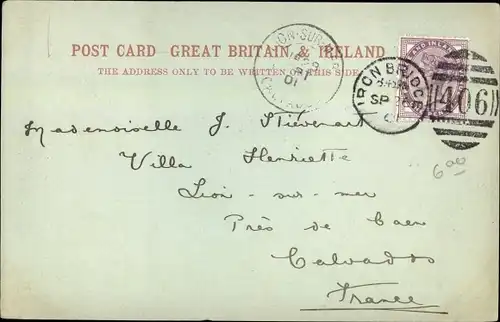 POST CARD GREAT BRITAIN & IRELAND
THE ADDRESS ONLY TO BE WRITTEN ON THIS SIDE
LION-SUR-MER
01
IRON BRIDGE
SP
406
AND
Mademoiselle J. Stiévenart
Villa Henriette
Lion-sur-mer
Près de Caen
Calvados
France
6